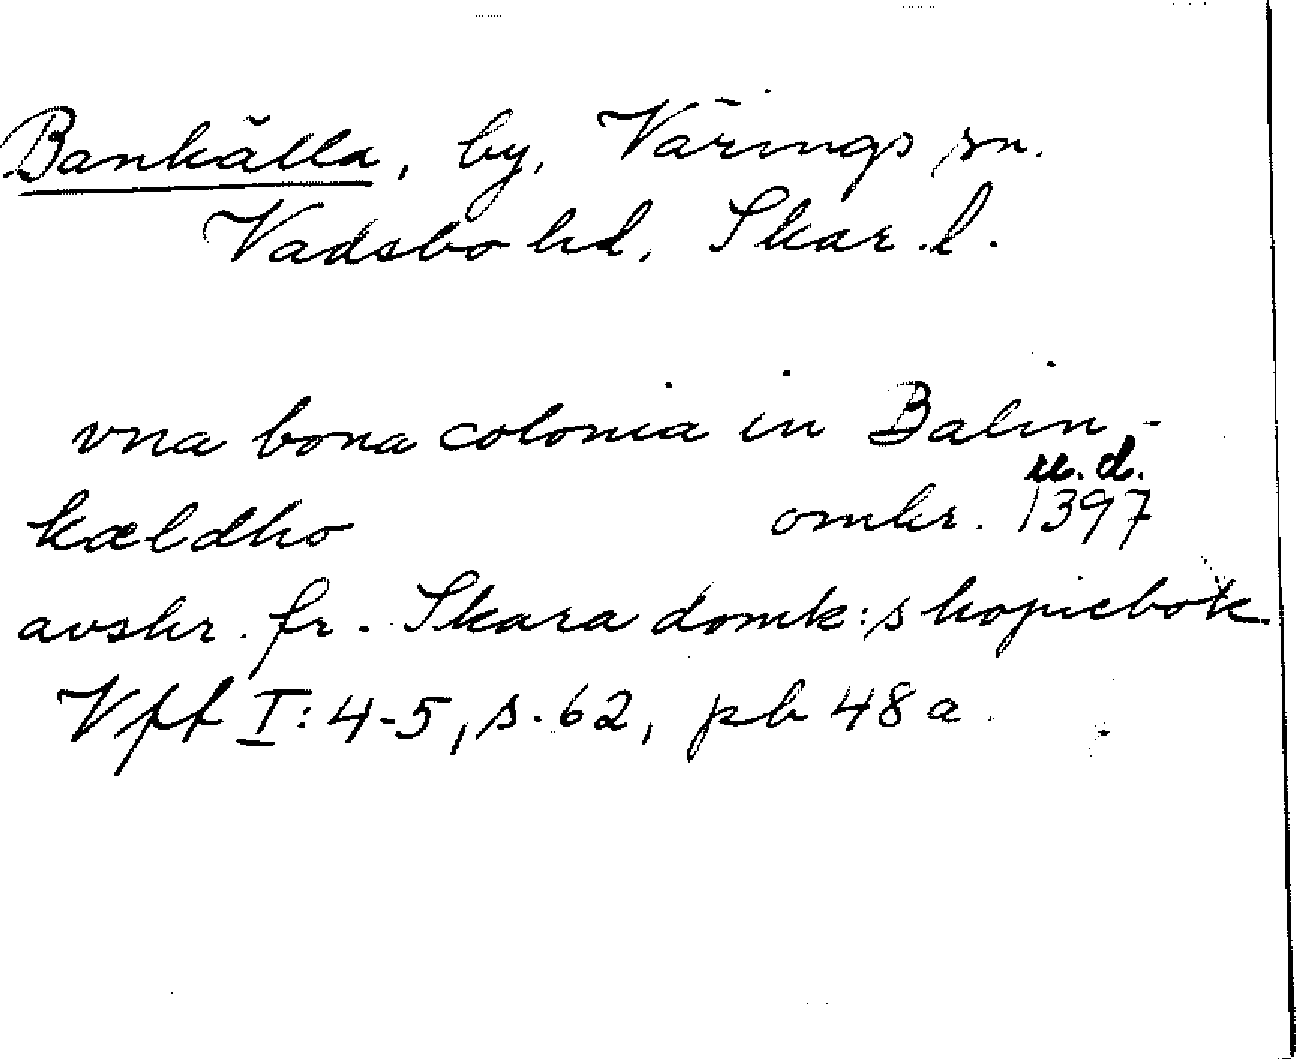 Bankälla, by, Värings sn.
Vadsbo hd, Skar. l.
vna bona colonia in Balin-
u.d.
kældho omkr. 1397
avskr. fr. Skara domk:s kopiebok
Vfl I: 4-5, s. 62, ph 48 a.